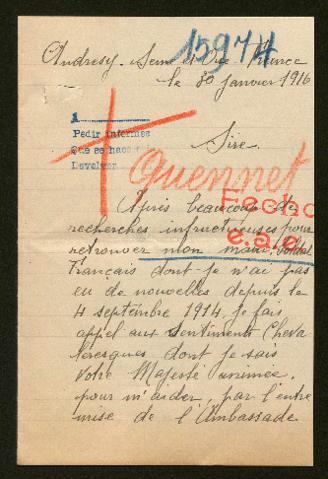 15974
Andresy. Seine et Oise France
le 30 janvier 1916
1
Pedir informes
Que se hace
Devolver
Sire,
Quennet
Fecho
Après beaucoup de
recherches infructueuses pour
retrouver mon mari, soldat
Français dont je n'ai pas
eu de nouvelles depuis le
4 septembre 1914, je fais
appel aux sentiments Cheva
leresques dont je sais
Votre Majesté animée,
pour m'aider, par l'entre
mise de l'Ambassade